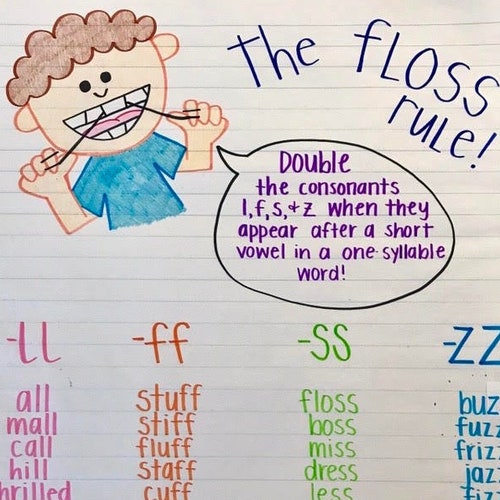 The FLOSS
rule!
Double
the consonants
l,f,s,+z when they
appear after a short
vowel in a one-syllable
word!
-ll
all
mall
call
hill
hrilled
-ff
stuff
stiff
fluff
staff
cuff
-ss
floss
boss
miss
dress
less
-zz
buz
fuzz
friz
jaz
fiz